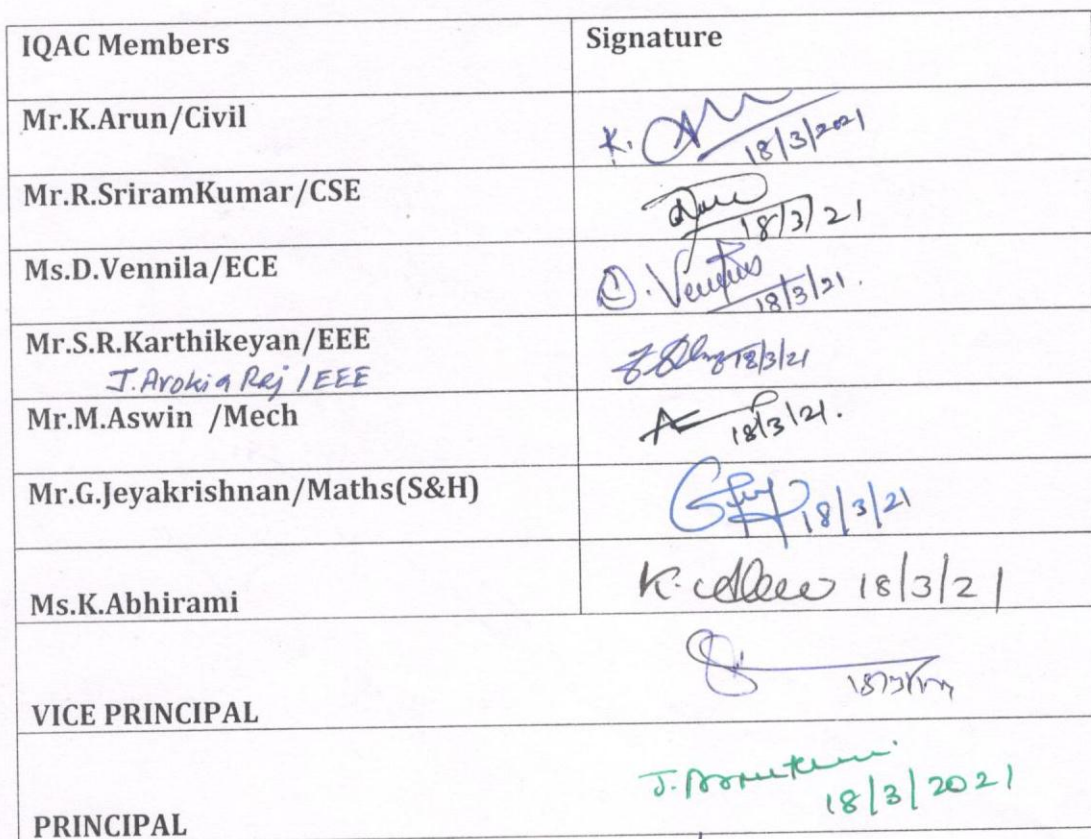 IQAC Members Signature
Mr.K.Arun/Civil K. 18/3/2021
Mr.R.SriramKumar/CSE 18/3/21
Ms.D.Vennila/ECE D. 18/3/21.
Mr.S.R.Karthikeyan/EEE 18/3/21
J.Arokia Raj / EEE
Mr.M.Aswin /Mech 18/3/21.
Mr.G.Jeyakrishnan/Maths(S&H) 18/3/21
Ms.K.Abhirami K. 18/3/21
VICE PRINCIPAL
J. 18/3/2021
PRINCIPAL